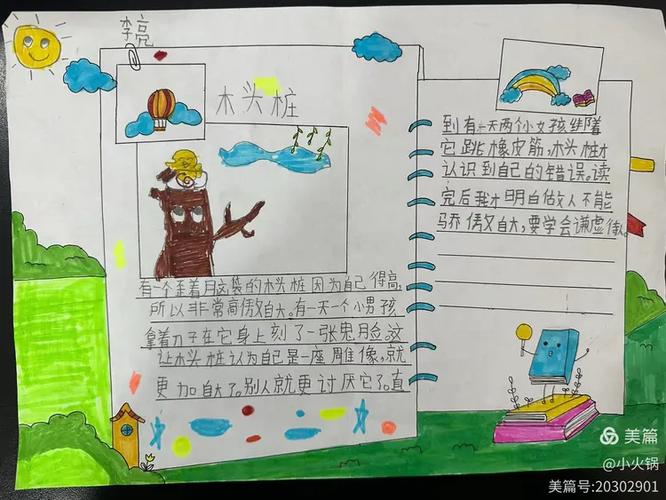 李亮
木头桩
有一个歪着脑袋的木头桩因为自己得高,
所以非常高傲自大。有一天一个小男孩
拿着刀子在它身上刻了一张鬼脸。这
让木头桩认为自己是一座雕像,就
更加自大了。别人就更讨厌它了。直
到有一天两个小女孩绊着
它跳橡皮筋,木头桩才
认识到自己的错误。读
完后我才明白做人不能
骄傲自大,要学会谦虚待人。
美篇
@小火锅
美篇号:20302901